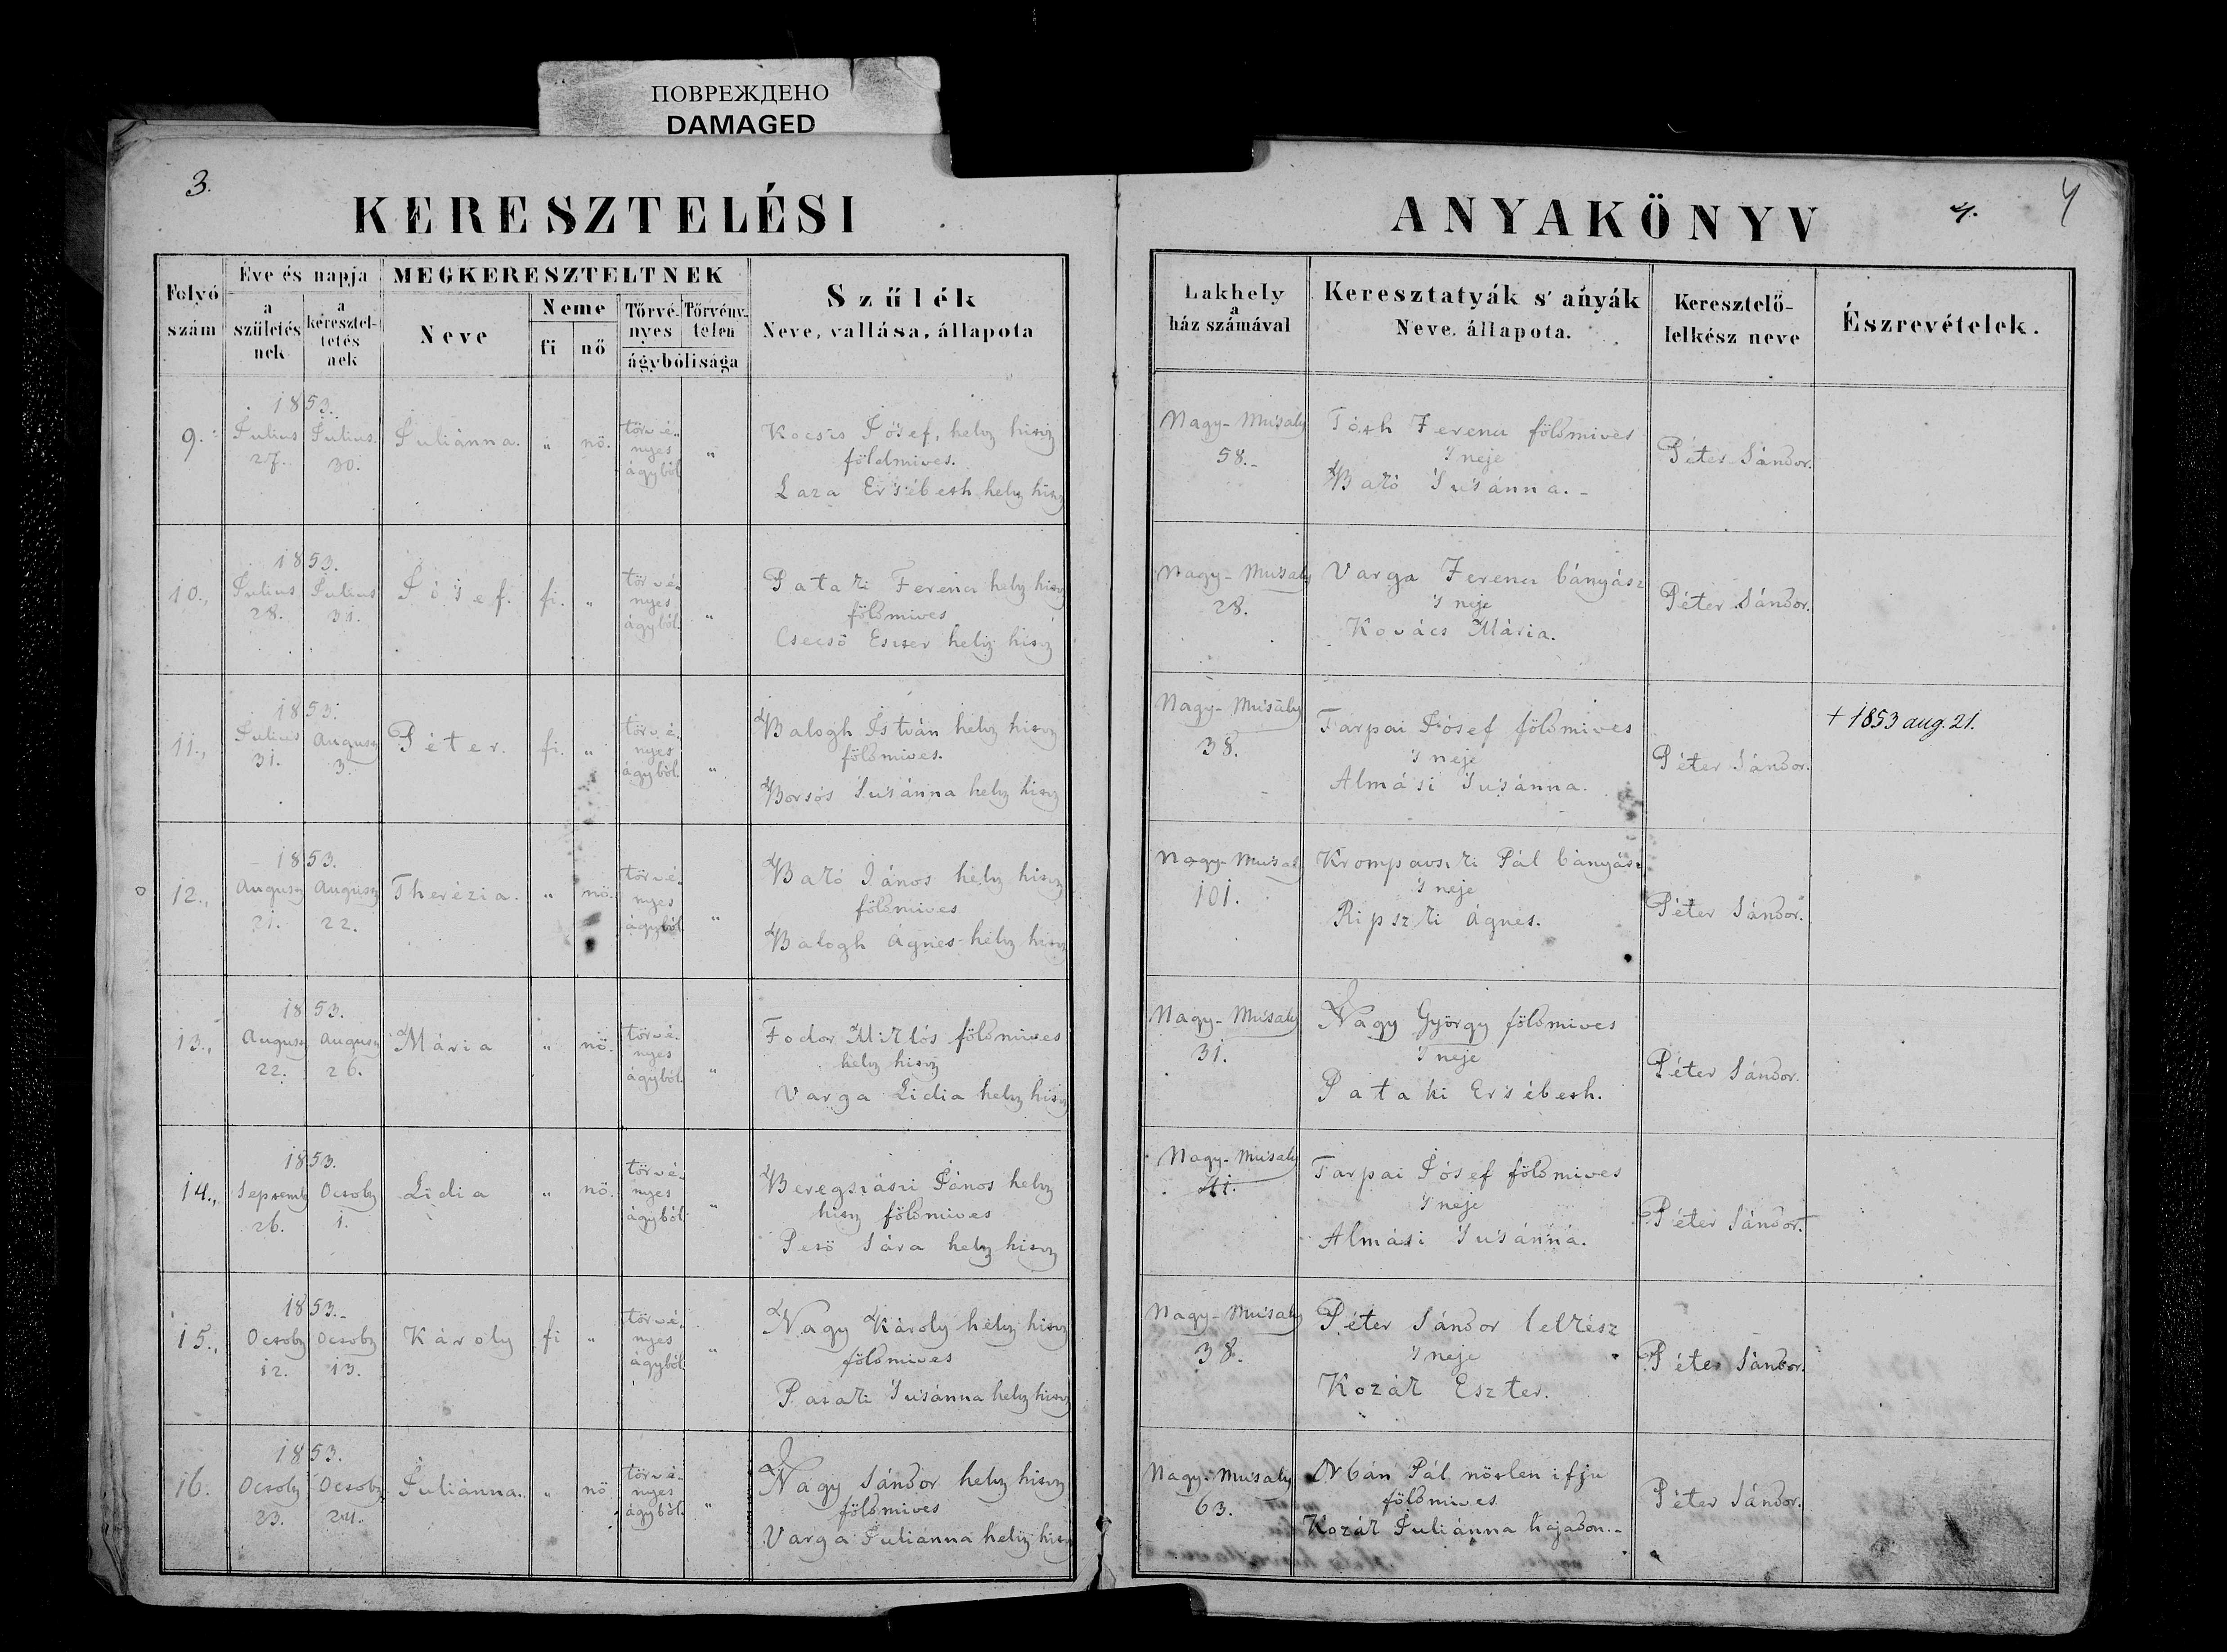 ПОВРЕЖДЕНО
DAMAGED
3.
KERESZTELÉSI
Folyó szám
Éve és napja
a születés nek
a keresztel- tetés nek
MEGKERESZTELTNEK
Neve
Neme
fi
nő
Törvé- nyes
Törvény- telen
ágybólisága
Szűlék
Neve, vallása, állapota
ANYAKÖNYV
4.
4
Lakhely
a
ház számával
Keresztatyák s' anyák
Neve, állapota.
Keresztelő-
lelkész neve
Észrevételek.
9.
1853.
Julius 27.
Julius 30.
Juliánna.
"
nö.
törvé- nyes ágyból
"
Kocsis Jósef, helv hisv
földmives.
Laza Ersébeth helv hisv
Nagy-Musaly
58.
Tóth Ferencz földmives
's neje
Bakó Susánna.
Péter Sándor.
10.,
1853.
Julius 28.
Julius 31.
Jósef.
fi.
"
törvé- nyes ágyból.
"
Pataki Ferencz helv hisv
földmives
Csecsö Eszter helv hisv
Nagy-Musaly
28.
Varga Ferencz bányász
's neje
Kovács Mária.
Péter Sándor.
11.,
1853.
Julius 31.
Augusz 3.
Péter.
fi.
"
törvé- nyes ágyból.
"
Balogh István helv hisv
földmives.
Borsós Susánna helv hisv
Nagy-Musaly
38.
Tarpai Jósef földmives
's neje
Almási Susánna.
Péter Sándor.
+ 1853 aug. 21.
12.,
1853.
Augusz 21.
Augusz 22.
Therézia.
"
nö.
törvé- nyes ágyból
"
Bakó János helv hisv
földmives
Balogh Ágnes helv hisv
Nagy-Musaly
101.
Pál bányász
's neje
Ripszki Ágnes.
Péter Sándor.
13.,
1853.
Augusz 22.
Augusz 26.
Mária
"
nö.
törvé- nyes ágyból.
"
Fodor Miklós földmives
helv hisv
Varga Lidia helv hisv
Nagy-Musaly
31.
Nagy György földmives
's neje
Pataki Ersébeth.
Péter Sándor.
14.,
1853.
Septemb 26.
Octob 1.
Lidia
"
nö.
törvé- nyes ágyból.
"
Beregszászi János helv
hisv földmives
Sára helv hisv
Nagy-Musaly
41.
Tarpai Jósef földmives
's neje
Almási Susánna.
Péter Sándor.
15.,
1853.
Octob 12.
Octob 13.
Károly
fi
"
törvé- nyes ágyból
"
Nagy Károly helv hisv
földmives
Pataki Susánna helv hisv
Nagy-Musaly
38.
Péter Sándor lelkész
's neje
Kozák Eszter.
Péter Sándor.
16.
1853.
Octob 23.
Octob 24.
Juliánna.
"
nö
törvé- nyes ágyból.
"
Nagy Sándor helv hisv
földmives
Varga Juliánna helv hisv
Nagy-Musaly
63.
Orbán Pál nötlen ifju
földmives
Kozák Juliánna hajadon.
Péter Sándor.